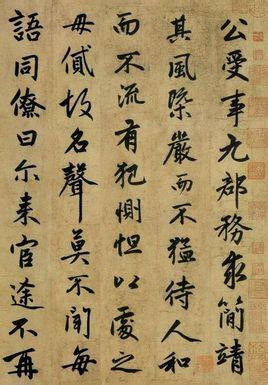 公受事九郡務求簡靖
其風槩嚴而不猛待人和
而不流有犯惻怛以處之
毋貳故名聲莫不聞每
語同僚曰尓来官途不再